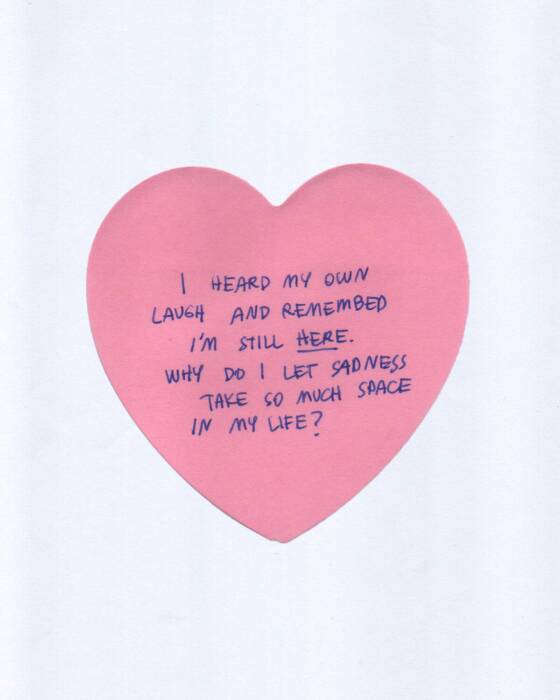 I HEARD MY OWN
LAUGH AND REMEMBED
I'M STILL HERE.
WHY DO I LET SADNESS
TAKE SO MUCH SPACE
IN MY LIFE?